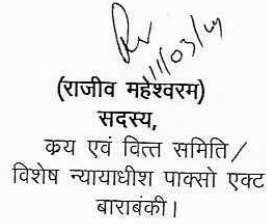 11/03/24
(राजीव महेश्वरम)
सदस्य,
क्रय एवं वित्त समिति/
विशेष न्यायाधीश पाक्सो एक्ट
बाराबंकी।